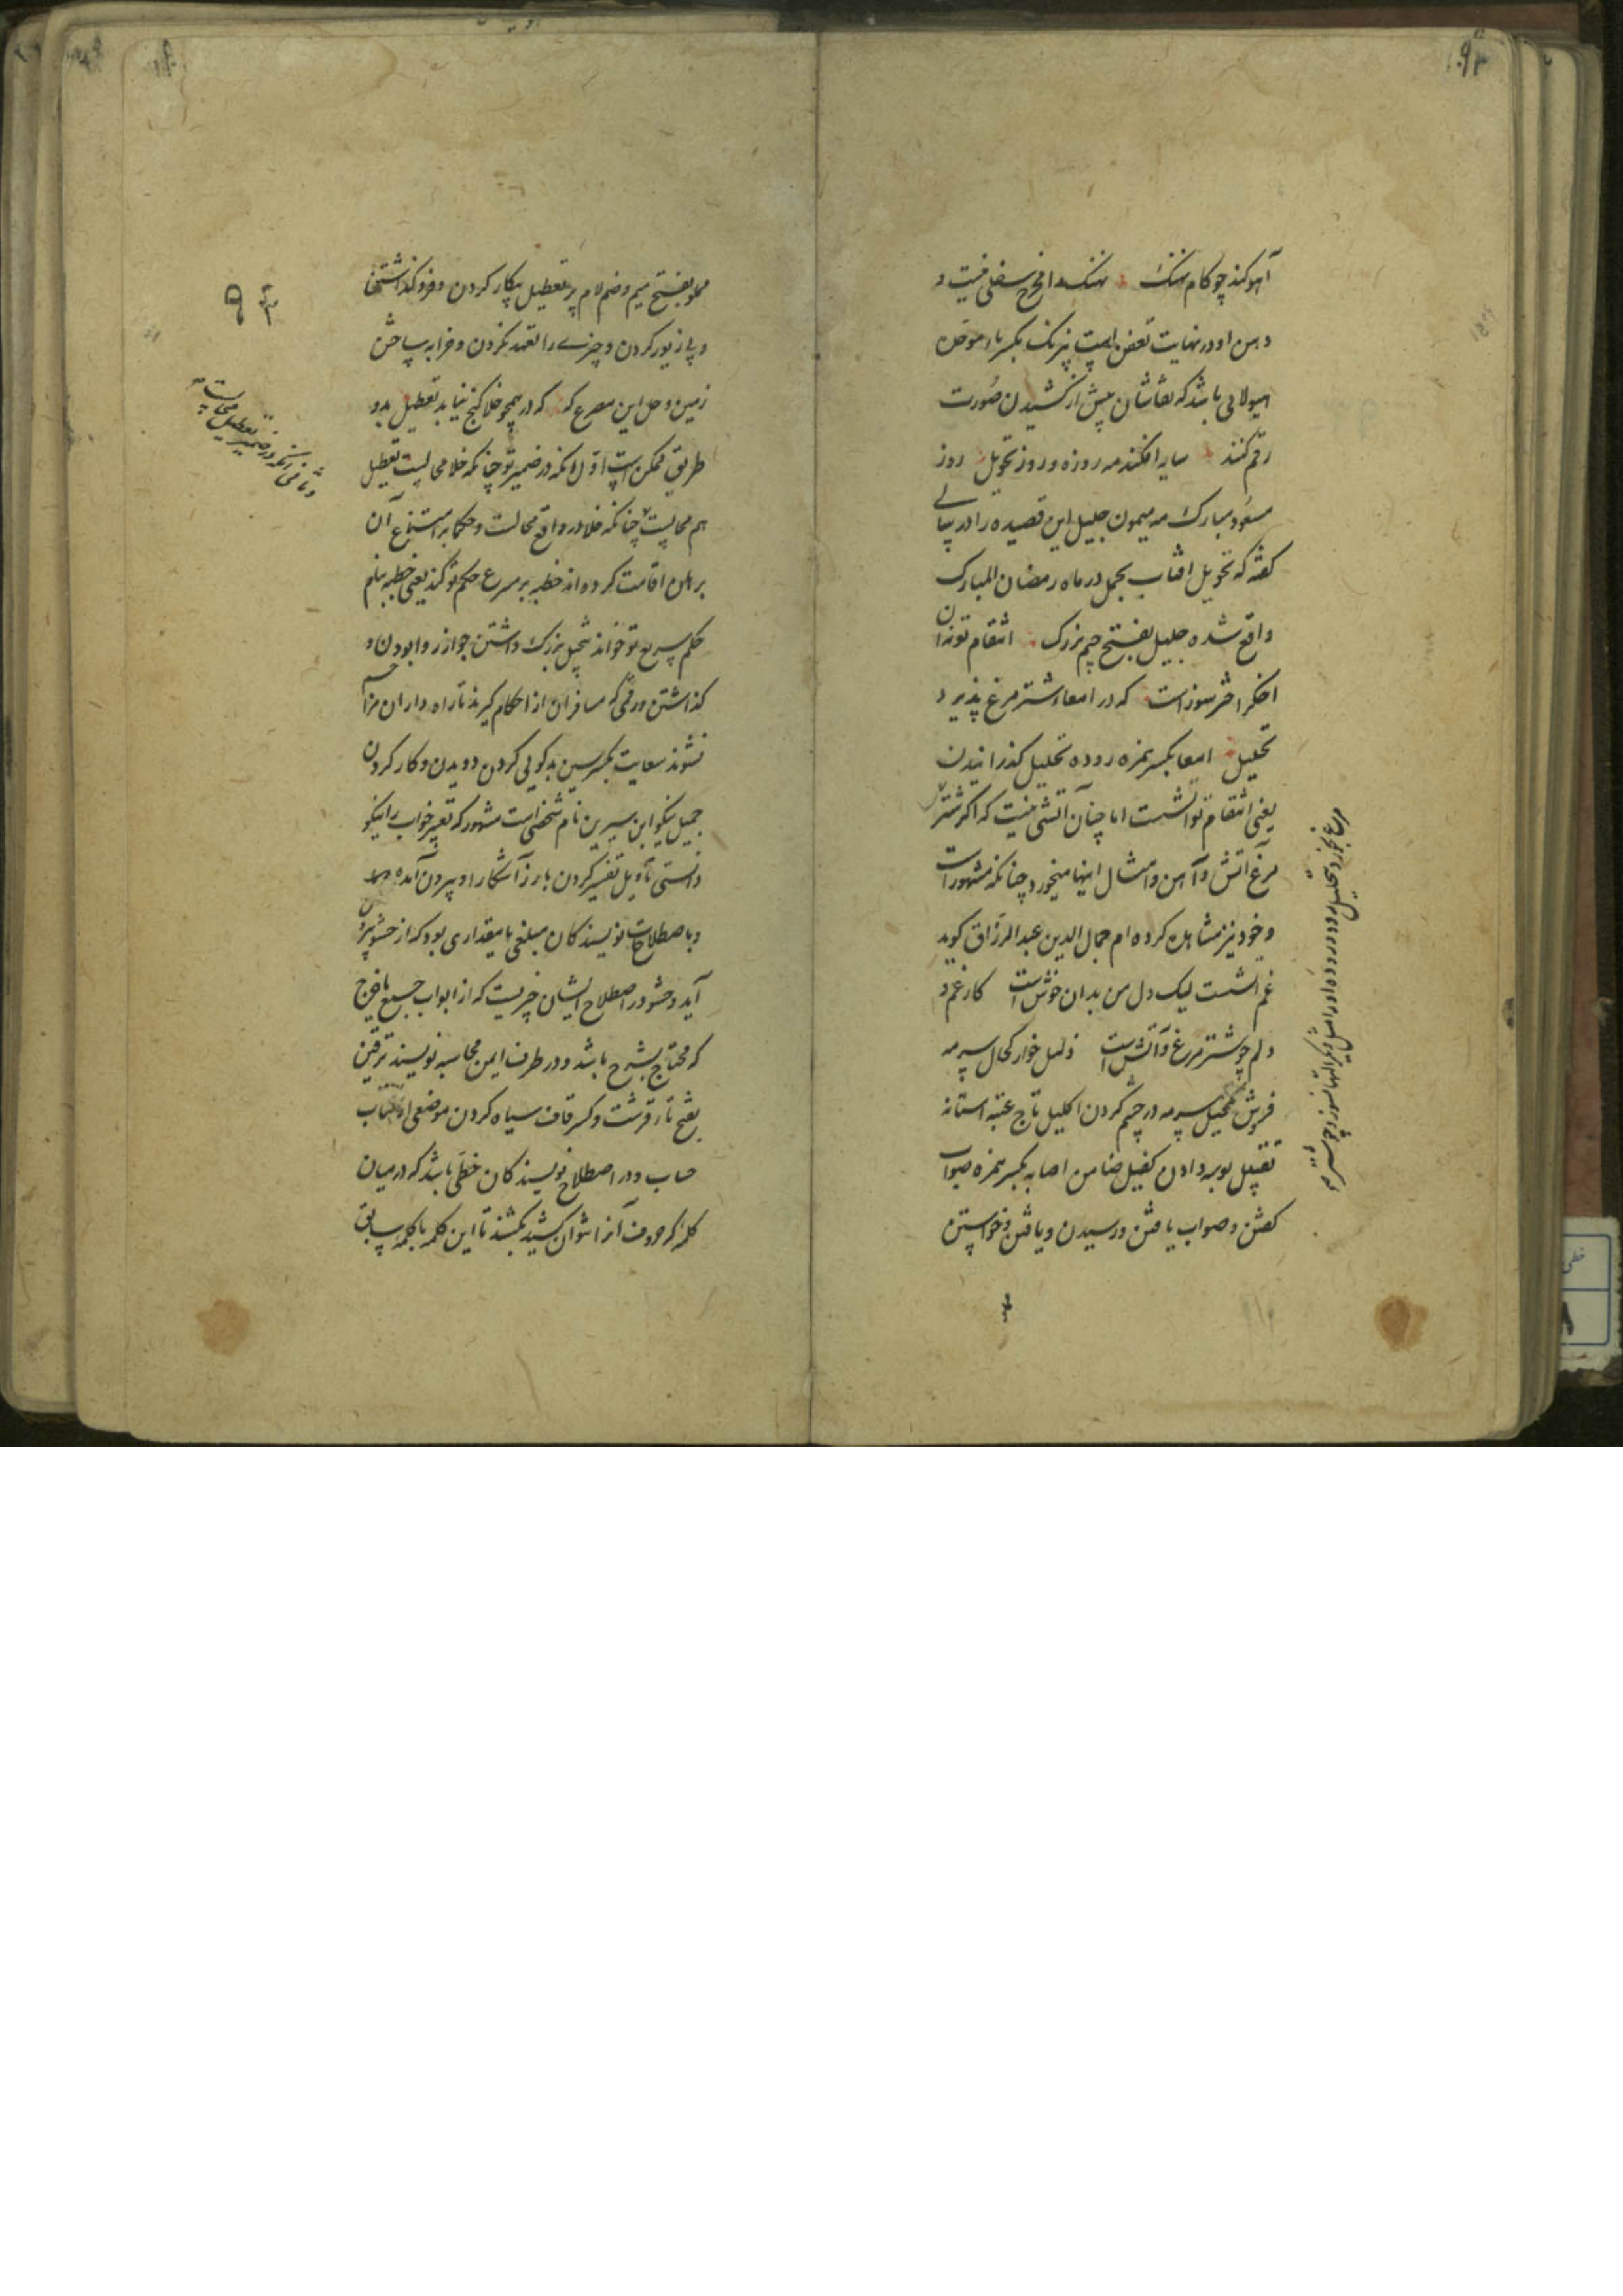 آهو کند چو کام نهنک نهنک را مخرج سفلی نیست و
دهن او در نهایت تعفن است نیرنک بکسر با موحده
هیولایی باشد که نقاشان پیش از کشیدن صورت
رقم کنند سایه افکند مه روزه و روز تحویل روز
مسعود مبارک مه میمون جلیل این قصیده را در
کفته که تحویل افتاب بحمل در ماه رمضان المبارک
واقع شده جلیل بفتح جیم بزرک انتقام تو نه ان
اخکر اختر سوزاست که در امعاء شتر مرغ پذیرد
تحلیل امعا بکسر همزه روده تحلیل کذرانیدن
یعنی انتقام تو اتشست اما چنان آتشی نیست که اکر شتر
مرغ آتش و آهن و امثال اینها میخورد چنانکه مشهور است
و خود نیز مشاهده کرده ام جمال الدین عبدالرزاق کوید
غم اتشست لیک دل من بدان خوش است کار غم و
دلم چو شتر مرغ و آتش است ذلیل خوار کحال سرمه
فروش تکحیل سرمه در چشم کردن اکلیل تاج عتبه استانه
تقبیل بوسه دادن کفیل ضامن اصابه بکسر همزه صواب
کفتن و صواب یافتن و رسیدن و یافتن و خواستن
۹۳
مملو بفتح میم و ضم لام پر تعطیل بیکار کردن و فرو کذاشتن
و بی زیور کردن و چیزی را تعهد نکردن و خرابه ساختن
زمین و حل این مصرع که که در همچو خلا کنج نیابد تعطیل بدو
طریق ممکن است اول انکه در ضمیر تو چنانکه خلا محالست تعطیل
هم محالیست چنانکه خلا در واقع محالست و حکما بر امتناع آن
برهان اقامت کرده اند خطبه بر سرع حکم تو کند یعنی خطبه بنام
حکم سریع تو خواند تبجیل بزرک داشتن جواز روا بودن و
کذاشتن و رقمی که مسافران از احکام کیرند تا راه داران مزاحم
نشوند سعایت بکسر سین بدکویی کردن دویدن و کار کردن
جمیل نیکو ابن سیرین نام شخصی است مشهور که تعبیر خواب را نیکو
دانستی تاویل تفسیر کردن بارز آشکارا و بیرون آمده
و باصطلاح نویسندکان مبلغی یا مقداری بود که از حشو بیرون
آید و حشو در اصطلاح ایشان خرجیست که از ابواب جمیع
که محتاج بشرح باشد و در طرف ایمن محاسبه نویسند ترقین
بفتح تاء قرشت و کسر قاف سیاه کردن موضعی از کتاب
حساب و در اصطلاح نویسندکان خطی باشد که در میان
کلمه که حروف آنرا توان کشید بکشند تا این کلمه با کلمه سابق
وثانی انکه در ضمیر تعطیل محالست